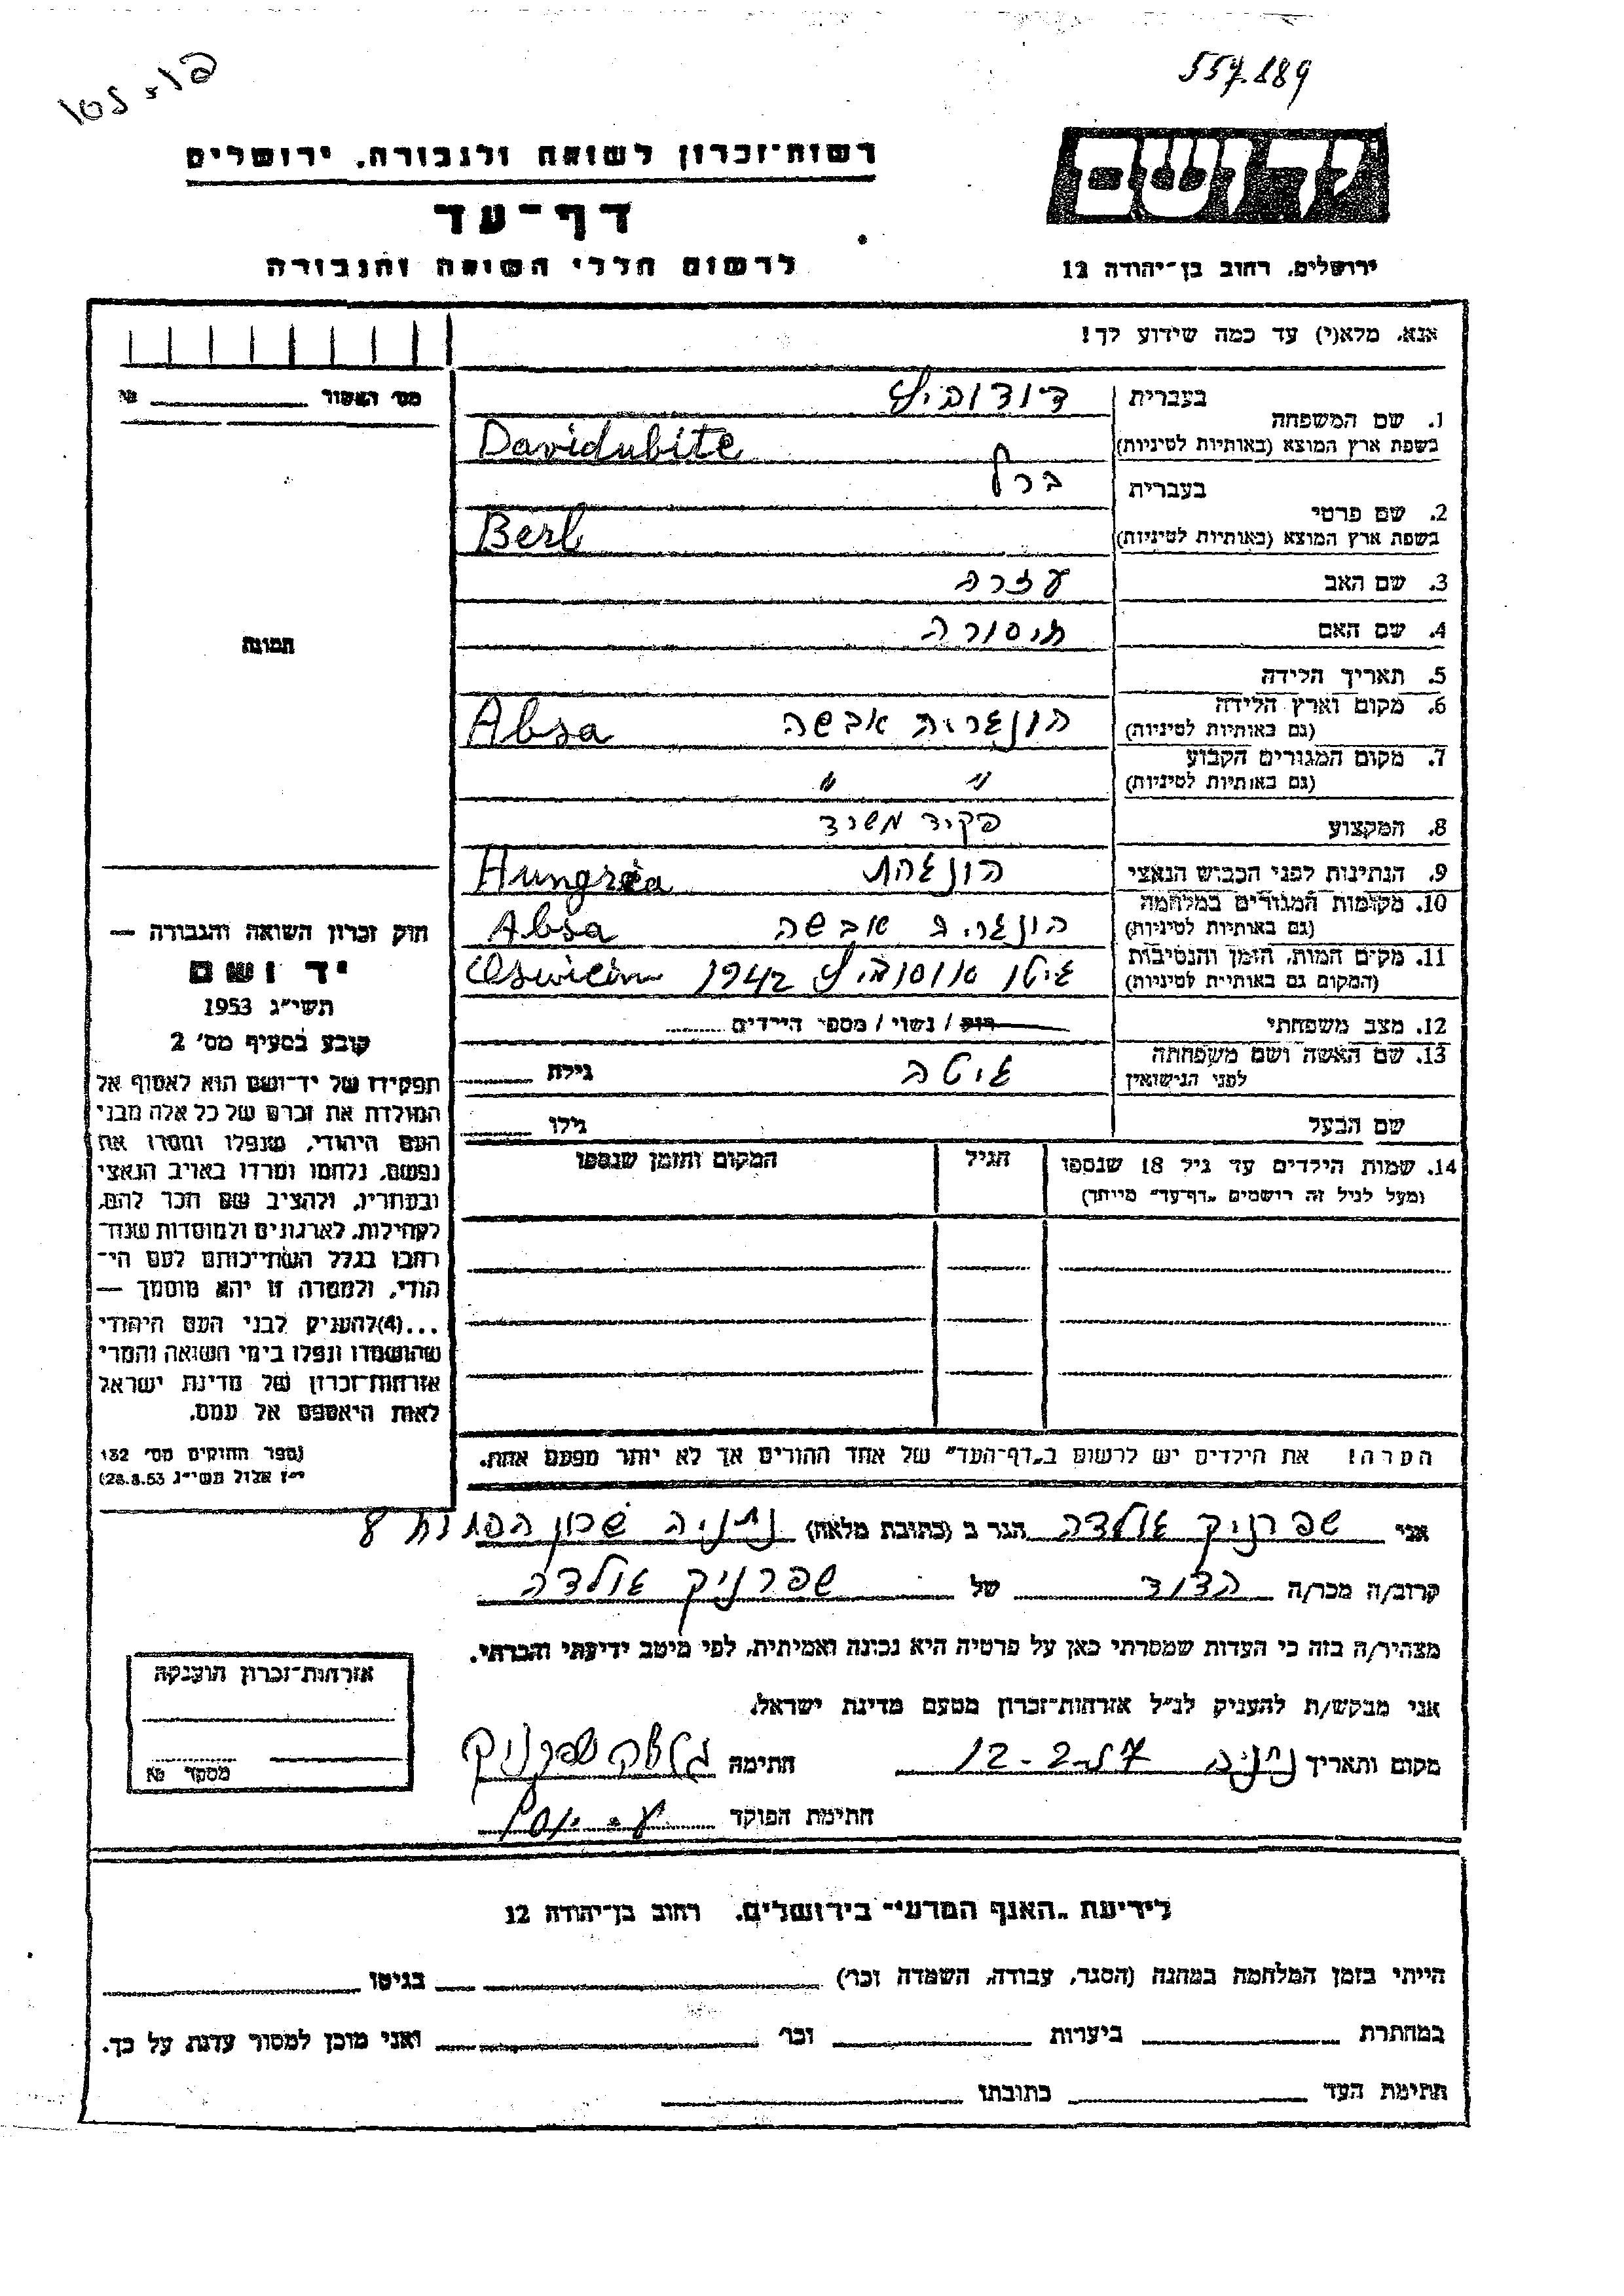 557.189
רשות־זכרון לשואה ולגבורה, ירושלים
דף־עד
לרשום חללי השואה והגבורה
יד ושם
ירושלים, רחוב בן־יהודה 12
אנא, מלא(י) עד כמה שידוע לך!
מס' האשור № 
1. שם המשפחה
בעברית דודוביץ
בשפת ארץ המוצא (באותיות לטיניות) Davidubite
2. שם פרטי
בעברית ברל
בשפת ארץ המוצא (באותיות לטיניות) Berl
3. שם האב עזרה
4. שם האם
תמונה
5. תאריך הלידה
6. מקום וארץ הלידה הונגריה אבשה Absa
(גם באותיות לטיניות)
7. מקום המגורים הקבוע " "
(גם באותיות לטיניות)
8. המקצוע פקיד משרד
9. הנתינות לפני הכבוש הנאצי הונגרית Hungria
10. מקומות המגורים במלחמה הונגריה אבשה Absa
(גם באותיות לטיניות)
11. מקום המות, הזמן והנסיבות גיטו אוסוביץ 1942 Oswicin
(המקום גם באותיות לטיניות)
12. מצב משפחתי רוק / נשוי / מספר הילדים
13. שם האשה ושם משפחתה גיטה גילה
לפני הנישואין
שם הבעל גילו
14. שמות הילדים עד גיל 18 שנספו הגיל המקום והזמן שנספו
(מעל לגיל זה רושמים „דף־עד" מיוחד)
חוק זכרון השואה והגבורה —
יד ושם
תשי"ג 1953
קובע בסעיף מס' 2
תפקידו של יד־ושם הוא לאסוף אל
המולדת את זכרם של כל אלה מבני
העם היהודי, שנפלו ומסרו את
נפשם, נלחמו ומרדו באויב הנאצי
ובעוזריו, ולהציב שם וזכר להם,
לקהילות, לארגונים ולמוסדות שנח־
רבו בגלל השתייכותם לעם הי־
הודי, ולמטרה זו יהא מוסמך —
...(4) להעניק לבני העם היהודי
שהושמדו ונפלו בימי השואה והמרי
אזרחות־זכרון של מדינת ישראל
לאות היאספם אל עמם.
(ספר החוקים מס' 132
י"ז אלול תשי"ג 28.8.53)
הערה! את הילדים יש לרשום ב„דף־העד" של אחד ההורים אך לא יותר מפעם אחת.
אני שפרניק גולדה הגר ב (כתובת מלאה) נתניה שכון 8
קרוב/ה מכר/ה הדוד של שפרניק גולדה
מצהיר/ה בזה כי העדות שמסרתי כאן על פרטיה היא נכונה ואמיתית, לפי מיטב ידיעתי והכרתי.
אני מבקש/ת להעניק לנ"ל אזרחות־זכרון מטעם מדינת ישראל.
מקום ותאריך נתניה 12-2-57 חתימה גולדה שפרניק
חתימת הפוקד
אזרחות־זכרון הוענקה
מספר №
לידיעת „האגף המדעי" בירושלים, רחוב בן־יהודה 12
הייתי בזמן המלחמה במחנה (הסגר, עבודה, השמדה וכר') בגיטו
במחתרת ביערות וכר' ואני מוכן למסור עדות על כך.
חתימת העד כתובתו